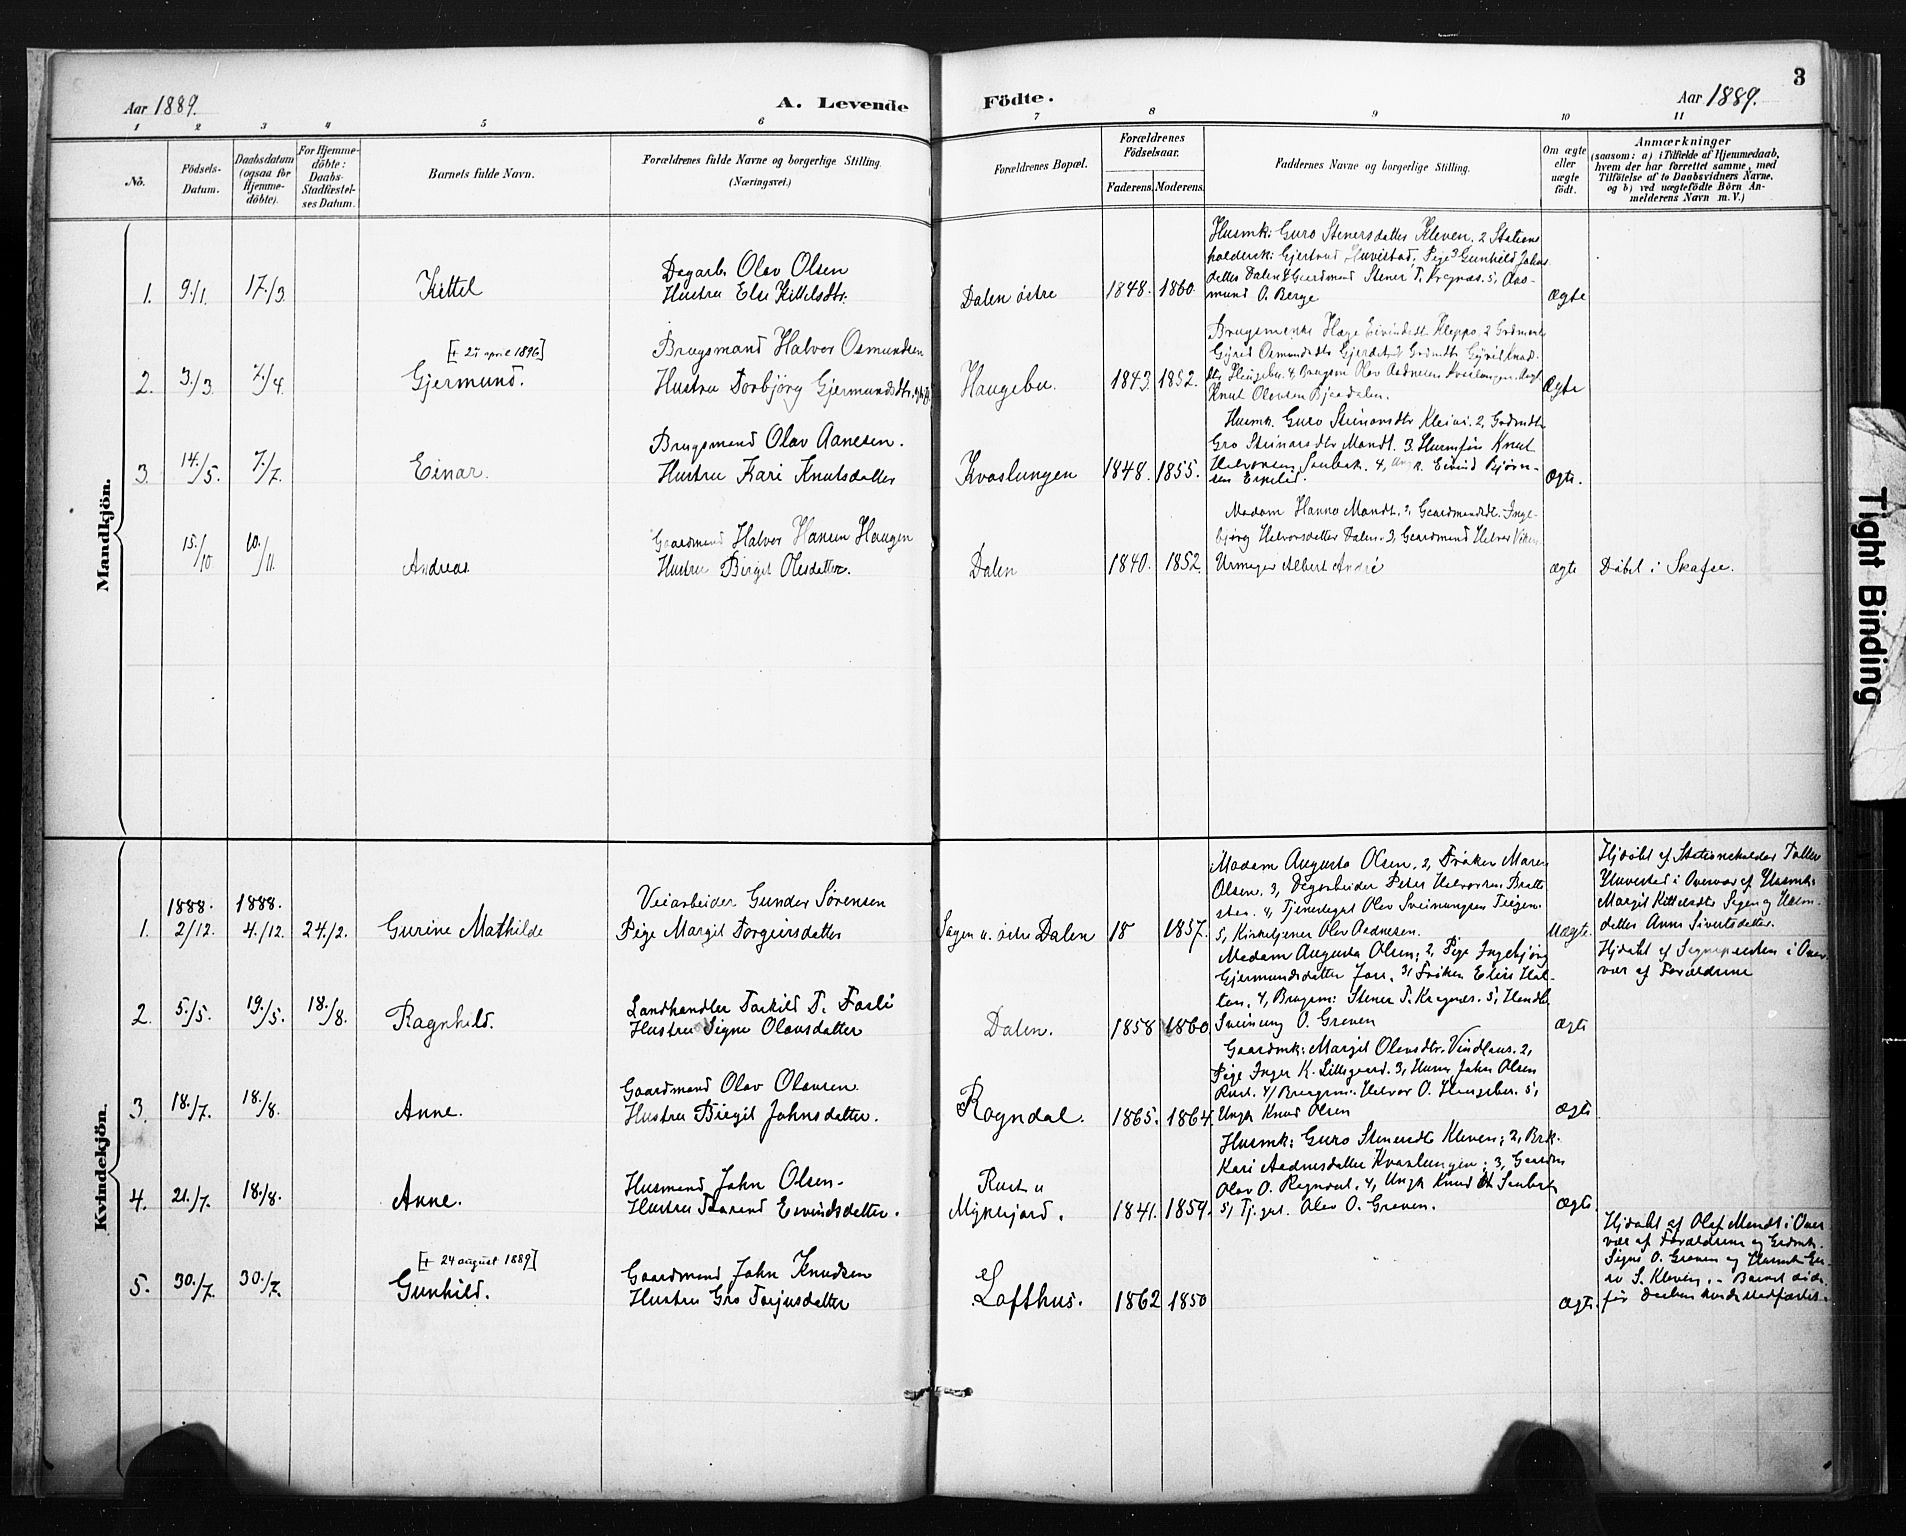 Aar 1889.
A. Levende
Födte.
Aar 1889.
3
1 2 3 4 5 6 7 8 9 10 11
No.
Födsels-
Datum.
Daabsdatum
(ogsaa for
Hjemme-
döbte).
For Hjemme-
döbte:
Daabs-
Stadfæstel-
ses Datum.
Barnets fulde Navn.
Forældrenes fulde Navne og borgerlige Stilling.
(Næringsvei.)
Forældrenes Bopæl.
Forældrenes
Födselsaar.
Faderens. Moderens.
Faddernes Navne og borgerlige Stilling.
Om ægte
eller
uægte
födt.
Anmærkninger
(saasom: a) i Tilfælde af Hjemmedaab,
hvem der har forrettet samme, med
Tilföielse af to Daabsvidners Navne,
og b) ved uægtefödte Börn An-
melderens Navn m. V.)
Mandkjön.
1. 9./1. 17./3. Kittel
Dagarb. Olav Olsen
Hustru Else Kittelsdtr.
Dalen östre 1848. 1860.
Husmk: Guro Stenersdatter Kleven. 2 Stations
holdersk: Gjertrud Huvestad, Pige 3 Gunhild Johns
datter Dalen 4 Gaardmand Stener T. Kragnæs. 5, Aas-
mund O. Berge
Ægte
2. 3./3. 7./4. [+ 25 april 1896]
Gjermund.
Brugsmand Halvor Osmundsen
Hustru Torbjörg Gjermundsdtr.
Haugebu. 1843 1852.
Eivindsdt. Kleppo, 2
Gjerdet
Knut Olavsen Bjaadalen.
Ægte
3. 14./5. 7./7. Einar.
Brugsmand Olav Aanesen.
Hustru Kari Knutsdatter
Kvaslungen 1848. 1855.
Husmk. Guro Steinarsdtr Kleivi. 2,
Gro Steinarsdtr Mandt. 3. Knut
Halvorsen Saubrek. 4, Eivind Björn-
sen
Ægte.
15./10 10./11. Andreas
Gaardmand Halvor Hansen Haugen
Hustru Birgit Olesdatter.
Dalen 1840. 1852.
Madam Hanna Mandt. 2, Gaardmandsdt. Inge-
björg Halvorsdatter Dalen. 3, Gaardmand Halvor Viken
Urmager Albert André
ægte Döbt i Skafse.
Kvindekjön.
1. 1888. 2/12. 1888. 4./12. 24./2. Gurine Mathilde
Veiarbeider Gunder Sörensen
Pige Margit Torgeirsdatter
Sagen u. östre Dalen 18 1857.
Madam Augusta Olsen. 2, Fröken Maren
Olsen. 3, Dagarbeider Peter Halvorsen Bratte
sten. 4, Tjenestegut Olav Sveinungsen Teigen
5, Kirketjener Olav Aadnesen.
Uægte.
Hjdöbt af Stationsholder Tallev
Huvestad i Overvær af Husmk:
Margit Kittelsdtr Sagen og Halvor-
datter Anne Sivertsdatter.
2. 5./5. 19./5. 18./8. Ragnhild.
Landhandler Tarkild T. Fosli
Hustru Signe Olavsdatter
Dalen. 1858 1860
Madam Augusta Olsen; 2, Pige Ingebjörg
Gjermundsdatter Jore. 3, Fröken Elise Hol-
ten. 4, Brugsm: Stener T. Kragnæs. 5, Handler
Sveinung O. Graven
ægte
Hjdöbt af Sognepræsten i Over-
vær af Forældrene
3. 18./7. 18./8. Anne.
Gaardmand Olav Olavsen
Hustru Birgit Johnsdatter.
Rogndal. 1865. 1864.
Gaardmk: Margit Olavsdtr. Vindlaus. 2,
Pige Inger K. Lillegaard. 3, Husm. John Olsen
Rust. 4, Brugsm. Halvor O. Haugebu. 5,
Ungk Knud Olsen
ægte
4. 21./7. 18./8. Anne.
Husmand John Olsen
Hustru Torand Eivindsdatter.
Rust u
Myklejord. 1841. 1859.
Husmk: Guro Stenersdtr Kleven; 2, Brk.
Kari Aadnesdatter Kvaslungen; 3, Gaardm
Olav O. Rogndal. 4, Ungk Knud
5, Tj.gut. Olav O. Graven.
ægte.
5. 30./7. 30./7. [+ 24 august 1889]
Gunhild.
Gaardmand John Knudsen
Hustru Gro Torjusdatter
Lofthus. 1862 1850
ægte.
Hjdöbt af Olaf Mandt i Over
vær af Forældrene og Grdmk.
Signe O. Graven og Husmk Gu-
ro S. Kleven. - Barnet döde
för Daaben kunde stadfæstes.
Tight Binding